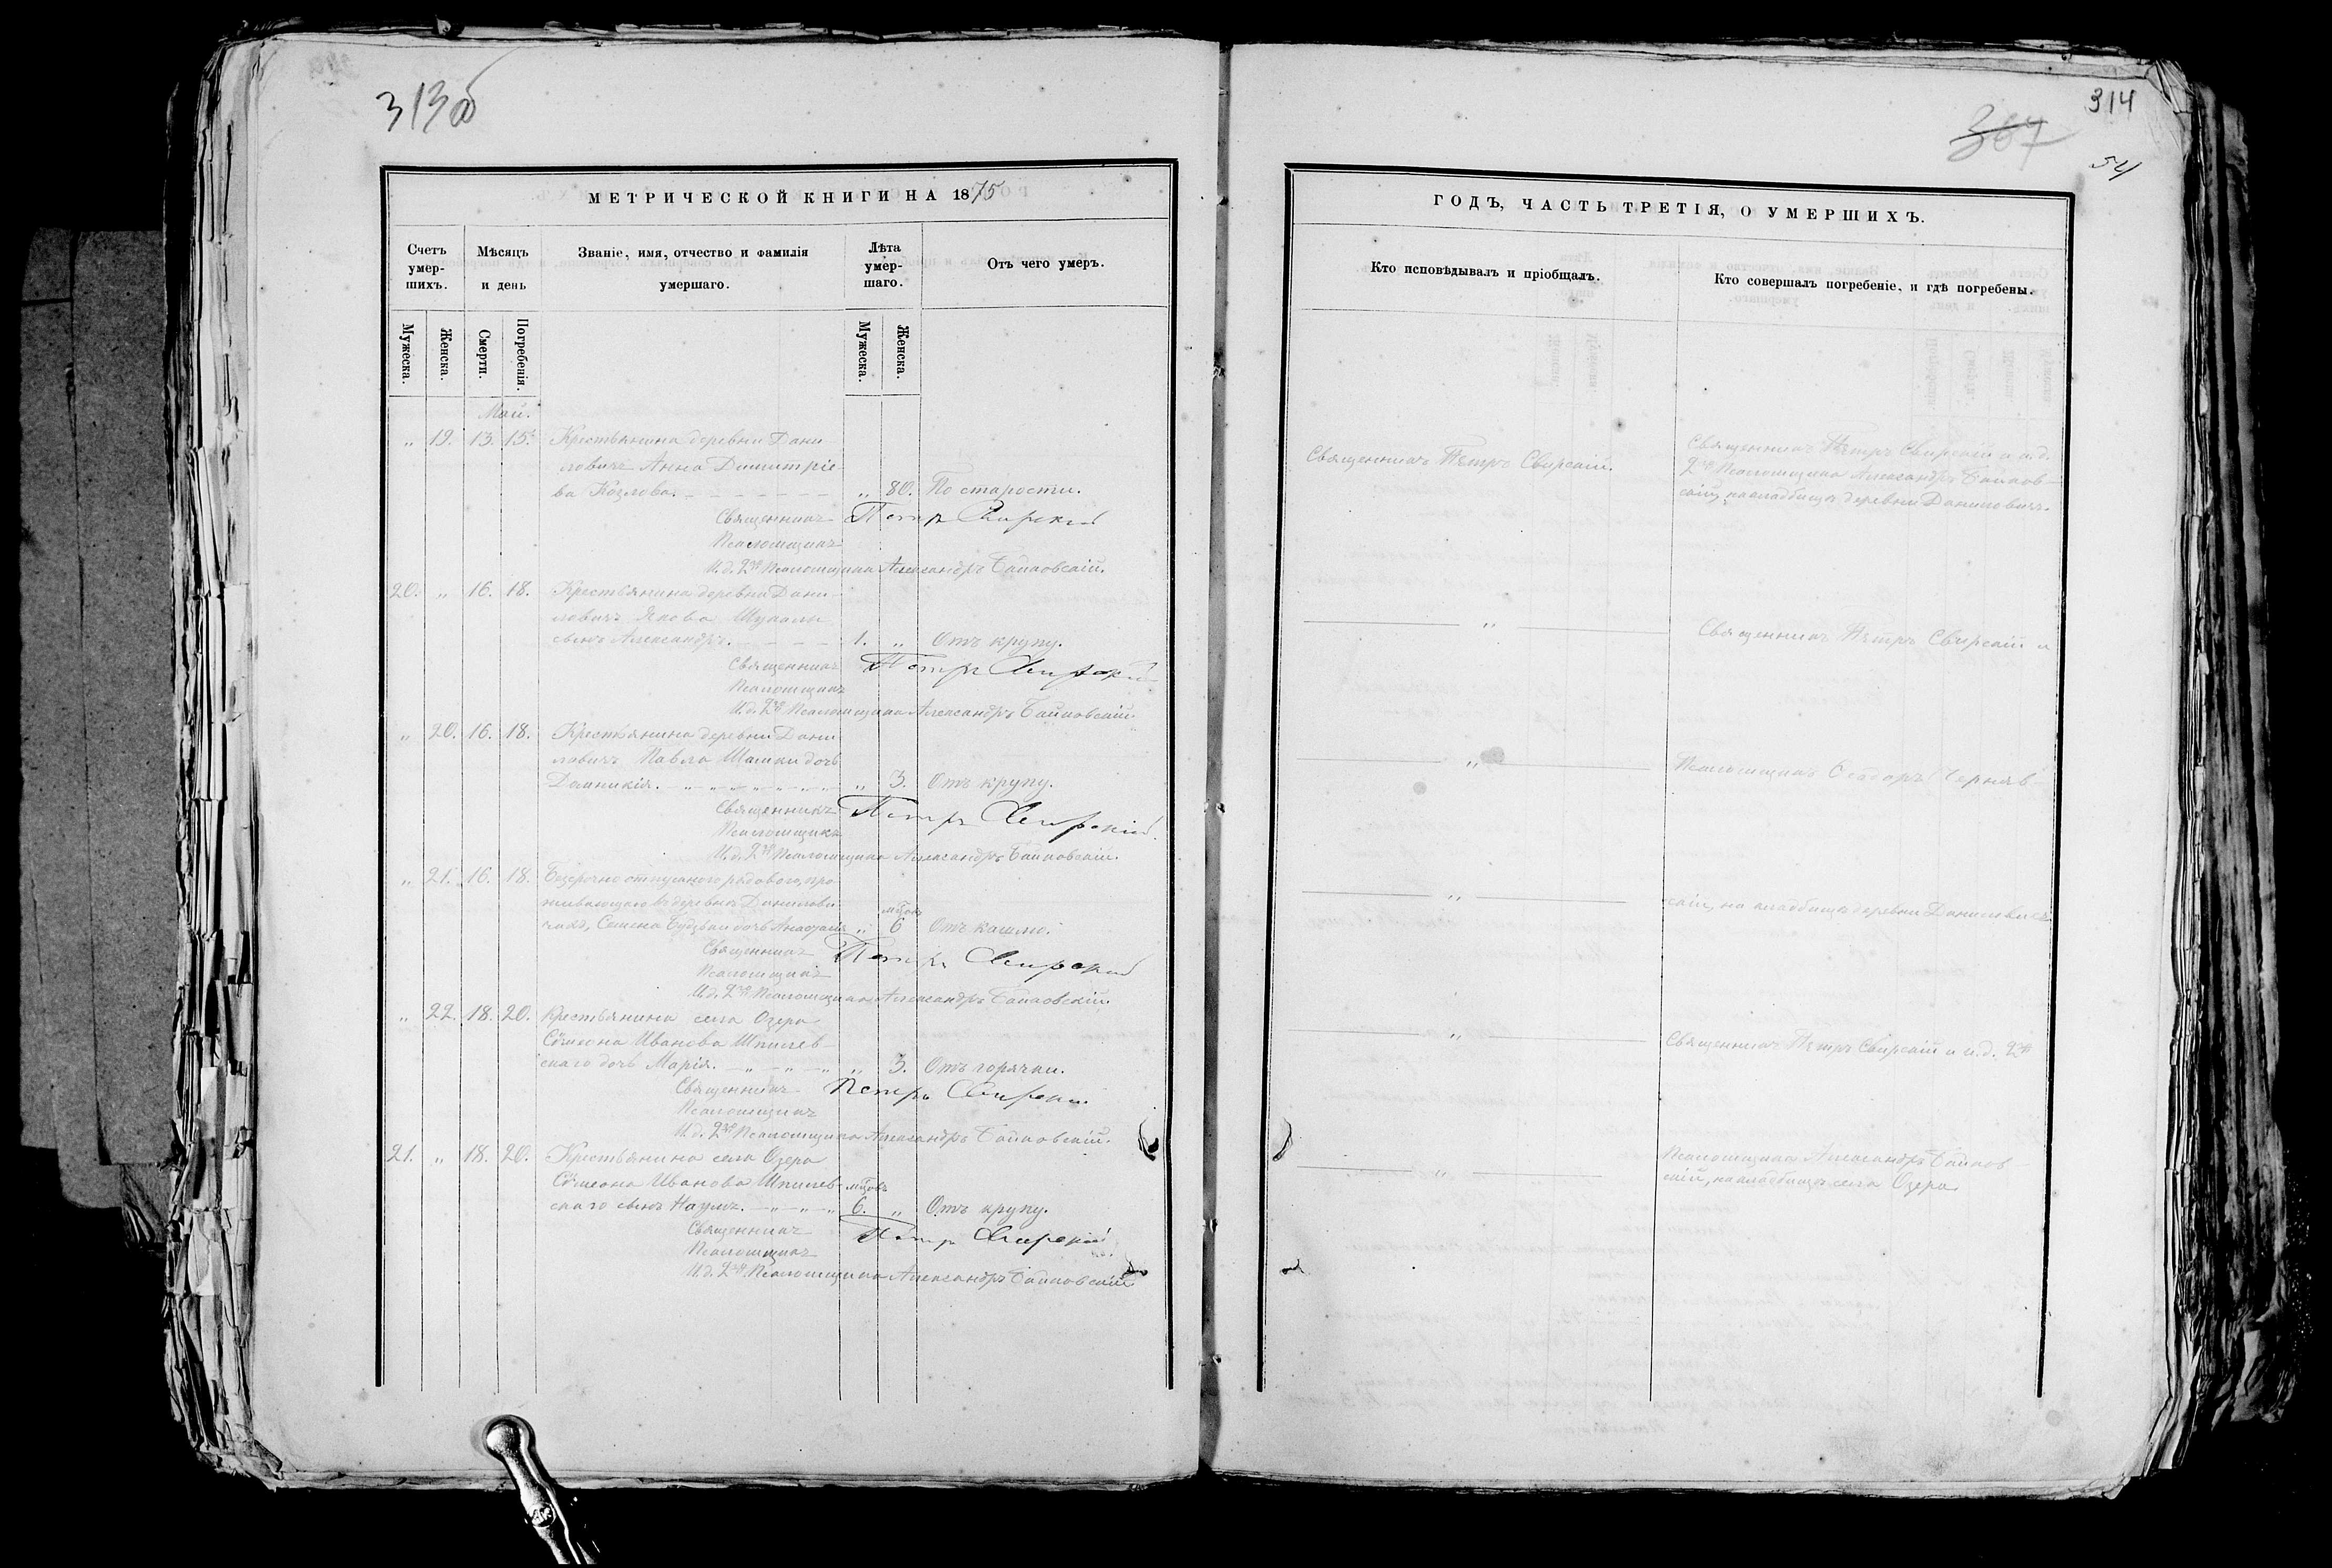 313об
МЕТРИЧЕСКОЙ КНИГИ НА 1875
Счетъ умер-шихъ.
Мѣсяцъ и день
Званіе, имя, отчество и фамилія умершаго.
Лѣта умер-шаго.
Отъ чего умеръ.
Мужеска.
Женска.
Смерти.
Погребенія.
Мужеска.
Женска.
Май.
„ 19. 13. 15. Крестьянина деревни Дани-
ловичъ Анна Димитріе-
ва Козлова. „ 80. По старости.
Священникъ Петръ Свирскій
Псаломщикъ
И.д. 2го Псаломщика Александръ
20. „ 16. 18. Крестьянина деревни Дани-
ловичъ Якова
сынъ Александръ. 1. „ Отъ крупу.
Священникъ Петръ Свирскій
Псаломщикъ
И.д. 2го Псаломщика Александръ
„ 20. 16. 18. Крестьянина деревни Дани-
ловичъ Павла Шашки дочь
„ 3. Отъ крупу.
Священникъ Петръ Свирскій
Псаломщикъ
И.д. 2го Псаломщика Александръ
„ 21. 16. 18. Безсрочно отпускного рядового, про-
живающаго въ деревнѣ Данилови-
чахъ, Семена дочь „ 6 Отъ кашлю.
Священникъ Петръ Свирскій
Псаломщикъ
И.д. 2го Псаломщика Александръ
„ 22. 18. 20. Крестьянина села Озера
Сѵмеона Иванова Шпилев-
скаго дочь Марія. „ 3. Отъ горячки.
Священникъ Петръ Свирскій
Псаломщикъ
И.д. 2го Псаломщика Александръ
21. „ 18. 20. Крестьянина села Озера
Сѵмеона Иванова Шпилев-
скаго сынъ Наумъ. 6. „ Отъ крупу.
Священникъ Петръ Свирскій
Псаломщикъ
И.д. 2го Псаломщика Александръ
314
367
54
ГОДЪ, ЧАСТЬ ТРЕТІЯ, О УМЕРШИХЪ.
Кто исповѣдывалъ и пріобщалъ.
Кто совершалъ погребеніе, и гдѣ погребены.
Священникъ Петръ Свирскій.
Священникъ Петръ Свирскій и и.д.
2го Псаломщика Александръ
скій, на кладбищѣ деревни Даниловичъ.
„
Священникъ Петръ Свирскій и
„
Псаломщикъ Черняв-
„
скій, на кладбищѣ деревни Даниловичъ
„
Священникъ Петръ Свирскій и и.д. 2го
„
Псаломщика Александръ
скій, на кладбищѣ села Озера.